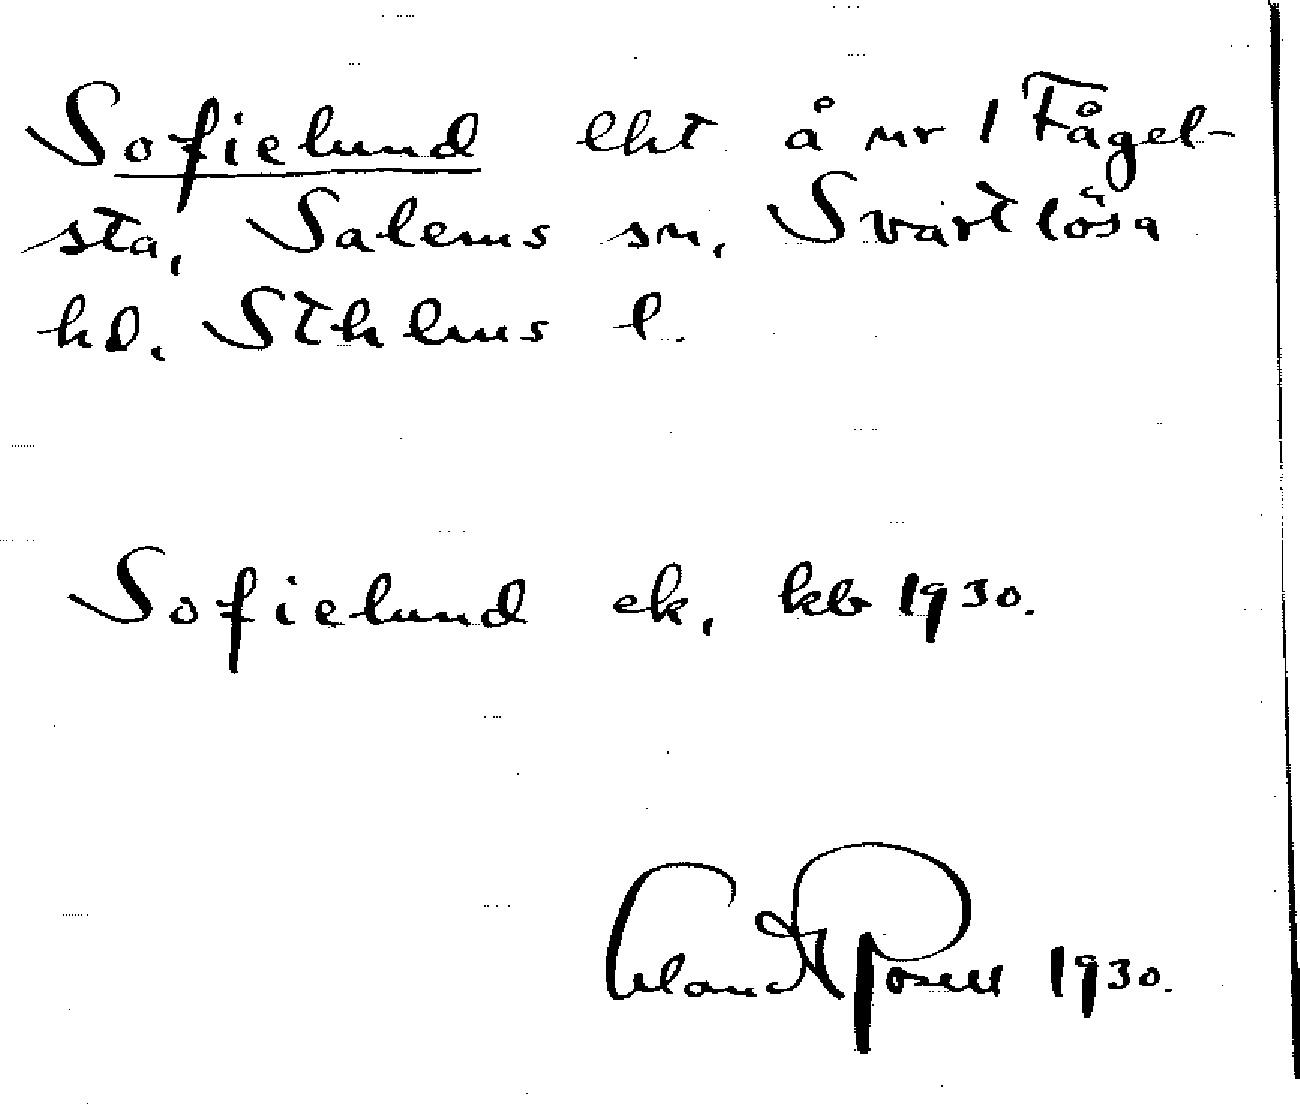 Sofielund lht å nr 1 Fågel-
sta, Salems sn, Svartlösa
hd. Sthlms l.
Sofielund ek, kb 1930.
Erland Rosell 1930.